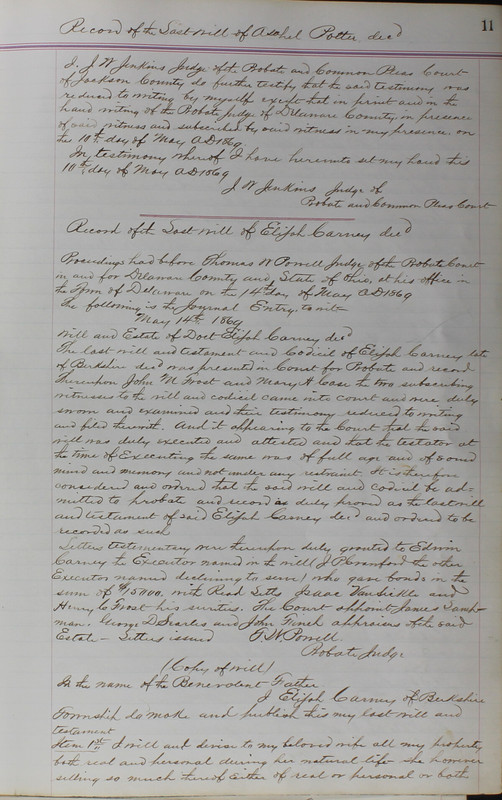 11
Record of the Last Will of Asahel Potter, dec'd
I, J W Jenkins Judge of the Probate and Common Pleas Court
of Jackson County do further testify that the said testimony was
reduced to writing by myself except that in print and in the
hand writing of the Probate Judge of Delaware County, in presence
of said witness and subscribed by said witness in my presence on
the 10th day of May AD 1869
In testimony whereof I have hereunto set my hand this
10th day of May AD 1869
J W Jenkins Judge of
Probate and Common Pleas Court
Record of the Last Will of Elijah Carney dec'd
Proceedings had before Thomas W Powell Judge of the Probate Court
in and for Delaware County and State of Ohio, at his office in
the Town of Delaware on the 14th day of May AD 1869
The following is the Journal Entry, to wit
May 14th 1869
Will and Estate of Doct Elijah Carney dec'd
The last will and testament and Codicil of Elijah Carney late
of Berkshire dec'd was presented in Court for Probate and record
Thereupon John M Frost and Mary H Case the two subscribing
witnesses to the will and codicil came into court and were duly
sworn and examined and their testimony reduced to writing
and filed therewith. And it appearing to the Court that the said
will was duly executed and attested and that the testator at
the time of Executing the same was of full age and of sound
mind and memory and not under any restraint. It is therefore
considered and ordered that the said will and codicil be ad-
mitted to probate and record as duly proved as the last will
and testament of said Elijah Carney dec'd and ordered to be
recorded as such
Letters testamentary were thereupon duly granted to Edwin
Carney the Executor named in the will (J P Crawford the other
Executor named declining to serve) who gave bonds in the
sum of with Read Letts Isaac Vansickle and
Henry C Frost his sureties. The Court appoint James
man. George D Searles and John Finch appraisers of the said
Estate - Letters issued T. W. Powell.
Probate Judge
(Copy of will)
In the name of the Benevolent Father
I Elijah Carney of Berkshire
Township do make and publish this my last will and
testament
Item 1st I will and devise to my beloved wife all my property
both real and personal during her natural life she however
selling so much thereof either of real or personal or both